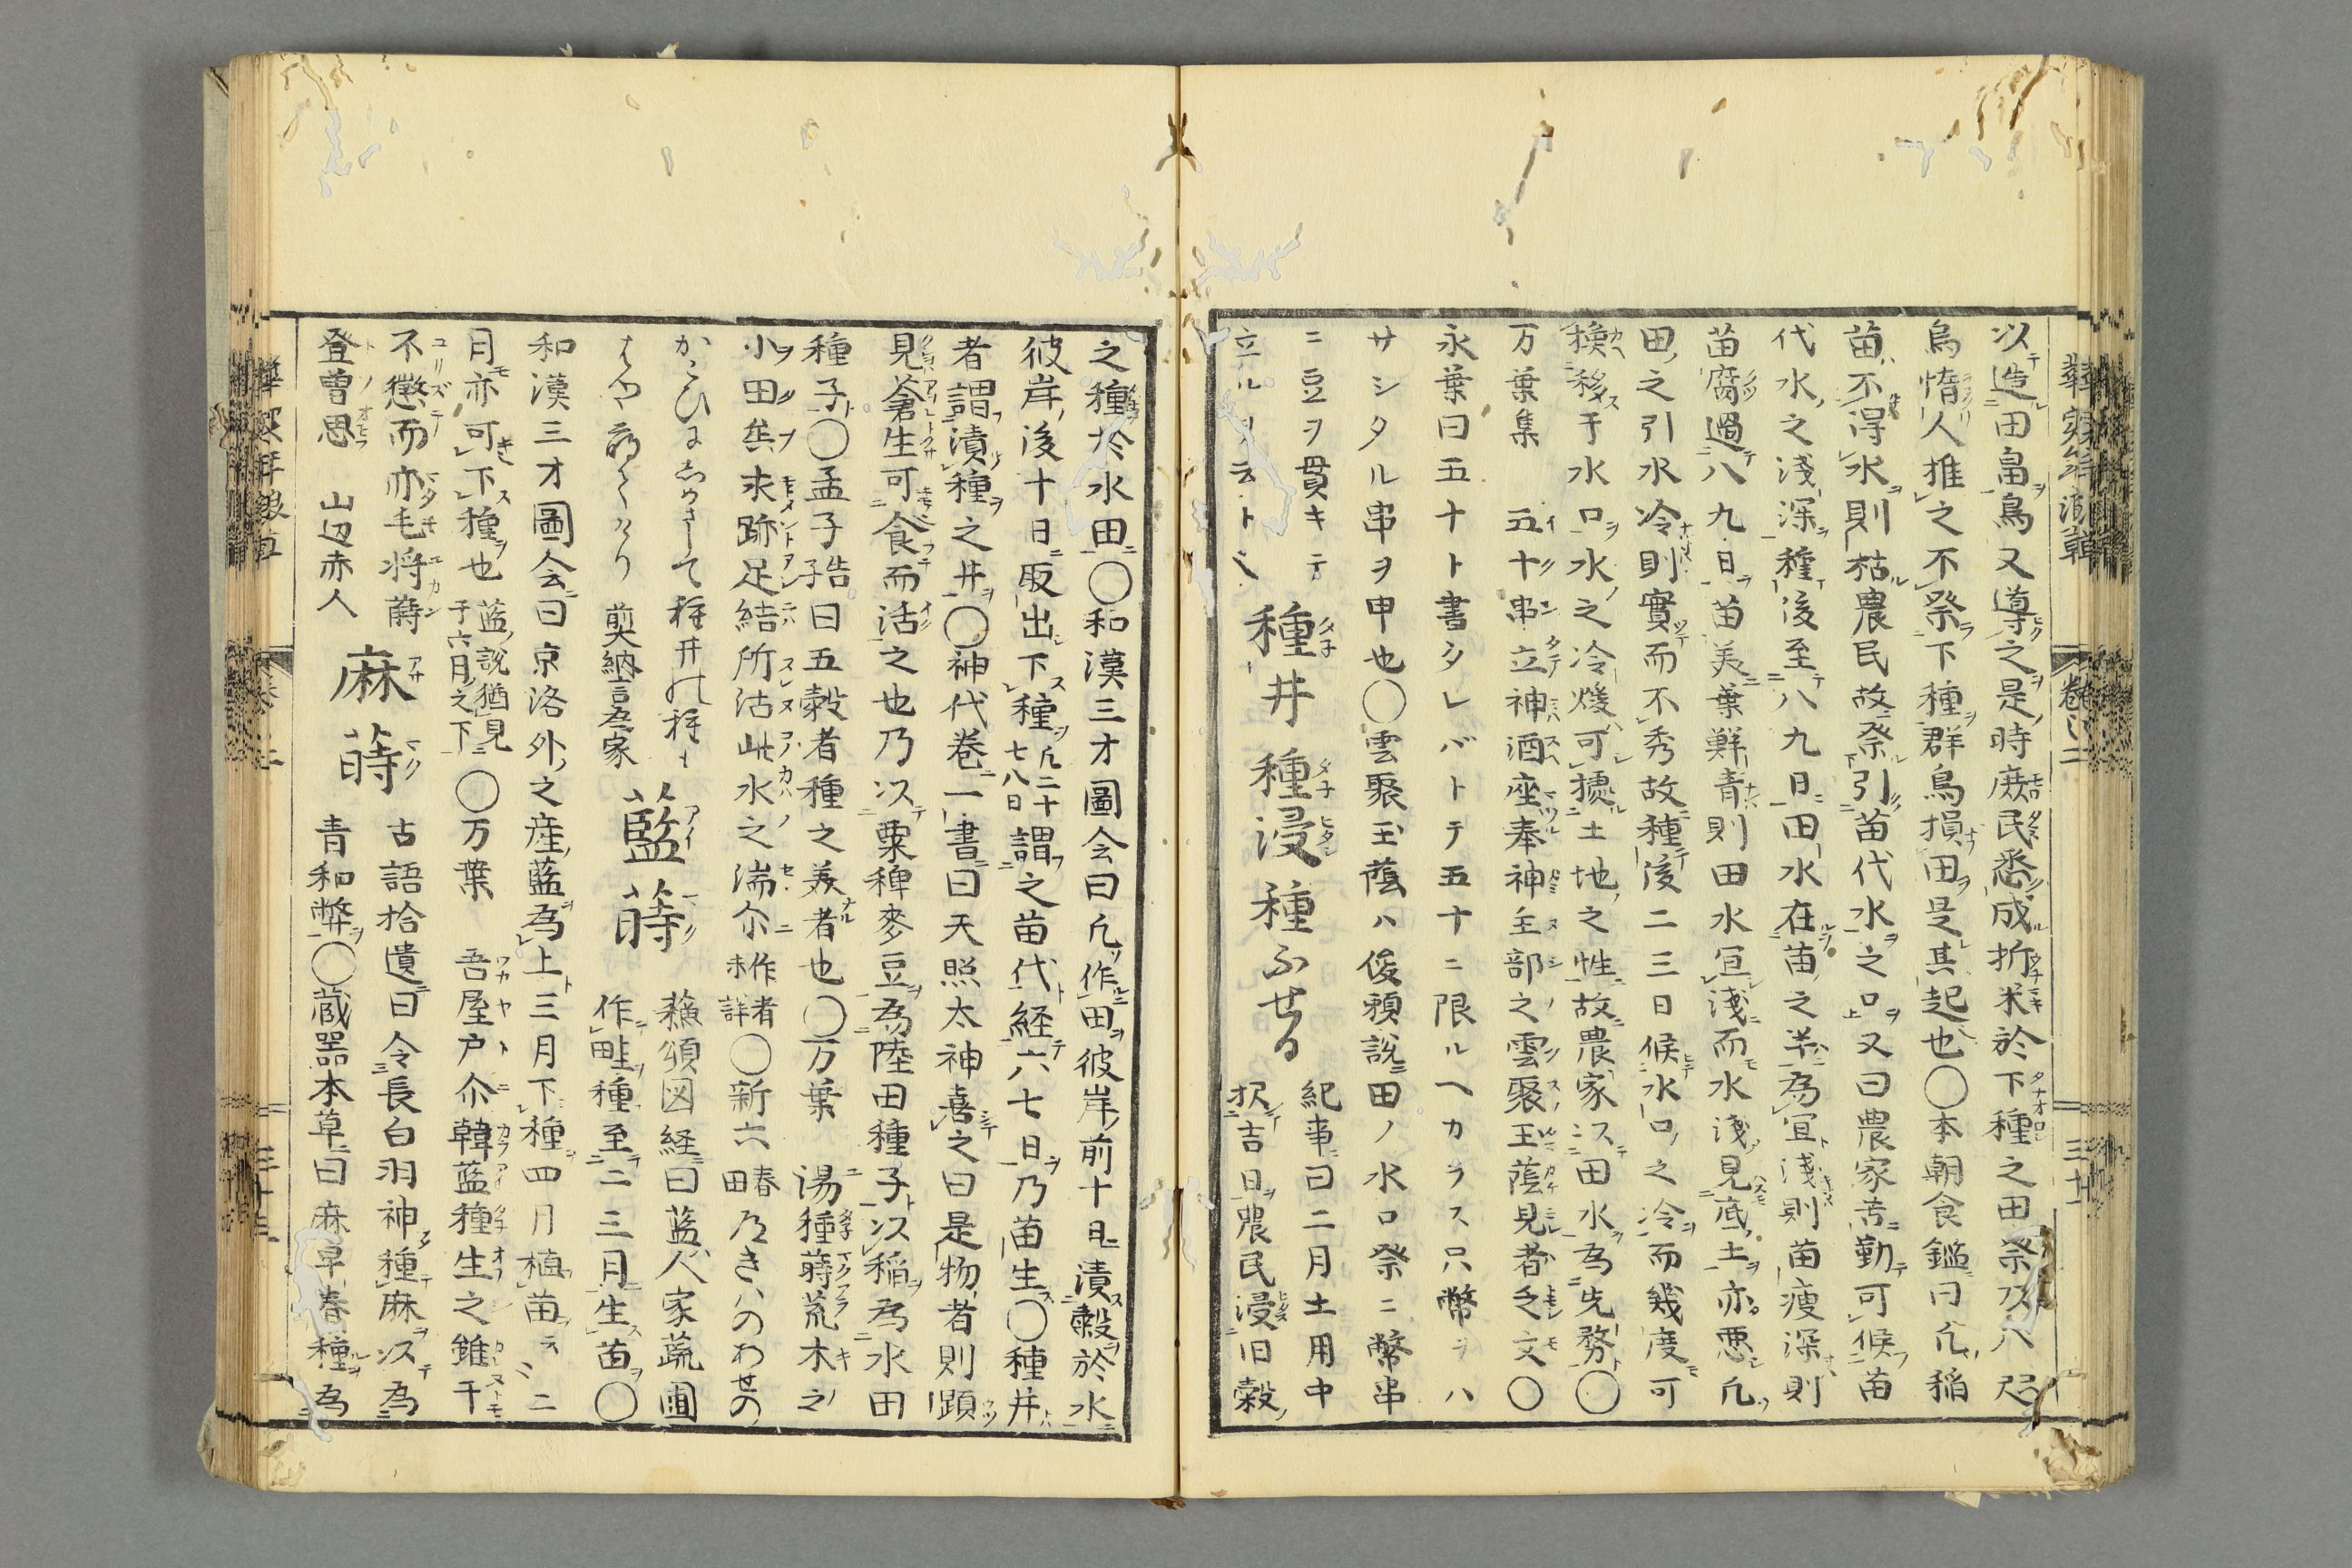 以造田畠鳥又導之是時庶民悉成折米於下種之田祭以八咫
烏惰人推之不祭下種群鳥損田是其起也〇本朝食鑑曰凢稲
苗不得水則枯農民故祭引苗代水之口又曰農家苦勤可候苗
代水之淺深種後至八九日田水在苗之半為宜淺則苗痩深則
苗腐過八九日苗美葉鮮青則田水宜淺而水淺見底土亦悪凢
田之引水冷則實而不秀故種後二三日候水口之冷而幾度可
換移于水口水之冷煖可擾土地之性故農家以田水為先務〇
万葉集 五十串立神酒座奉神主部之雲聚玉蔭見者乏文〇
永葉曰五十ト書タレバトテ五十ニ限ルヘカラス只幣ヲハ
サシタル串ヲ申也〇雲聚玉蔭ハ俊頼説田ノ水口祭ニ幣串
ニ豆ヲ貫キテ
立ルヲ云トハ
種井種浸種ふせる
紀事曰二月土用中
択吉日農民浸旧穀
之種於水田〇和漢三才圖会曰凢作田彼岸前十日漬穀於水
彼岸後十日取出下種凢二十七八日謂之苗代経六七日乃苗生〇種井
者謂漬種之井〇神代巻一書曰天照太神喜之曰是物者則顕
見蒼生可食而活之也乃以粟稗麥豆為陸田種子以稲為水田
種子〇孟子告子曰五穀者種之美者也〇万葉 湯種蒔荒木之
小田矣求跡足結所沾此水之湍尓作者未詳〇新六春田たきハのわせの
かこひ
剪大納言為家
藍蒔
蘓頌図経曰藍人家蔬圃
作畦種至二三月生苗〇
和漢三才圖会曰京洛外之産藍為上三月下種四月植苗ラミニ
月亦可下種也藍説猶見于六月之下〇万葉 吾屋戸尓韓藍種生之雖干
不懲而亦毛将蒔
登曽思 山辺赤人
麻蒔
古語拾遺曰令長白羽神種麻以為
青和幣〇蔵器本草曰麻早春種為
巻之二
三十